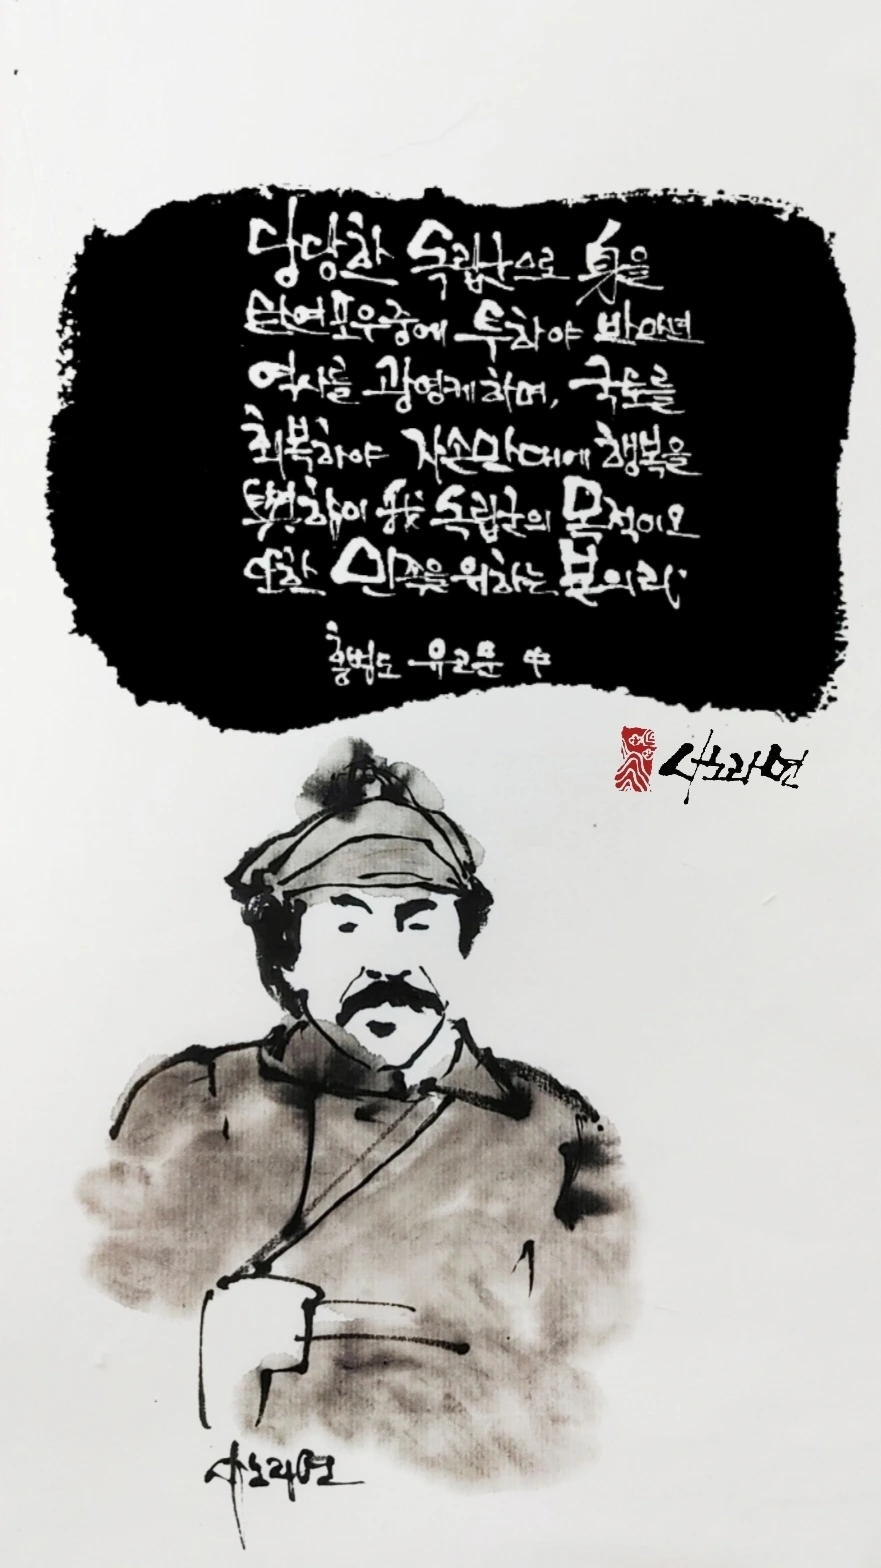 당당한 독립군으로 身을
탄연포우중에 투하야 반만년
역사를 광영케하며, 국토를
회복하야 자손만대에 행복을
與함이 我 독립군의 목적이오
또한 민족을 위하는 본의라.
홍범도 유고문 中
사노라면
사노라면